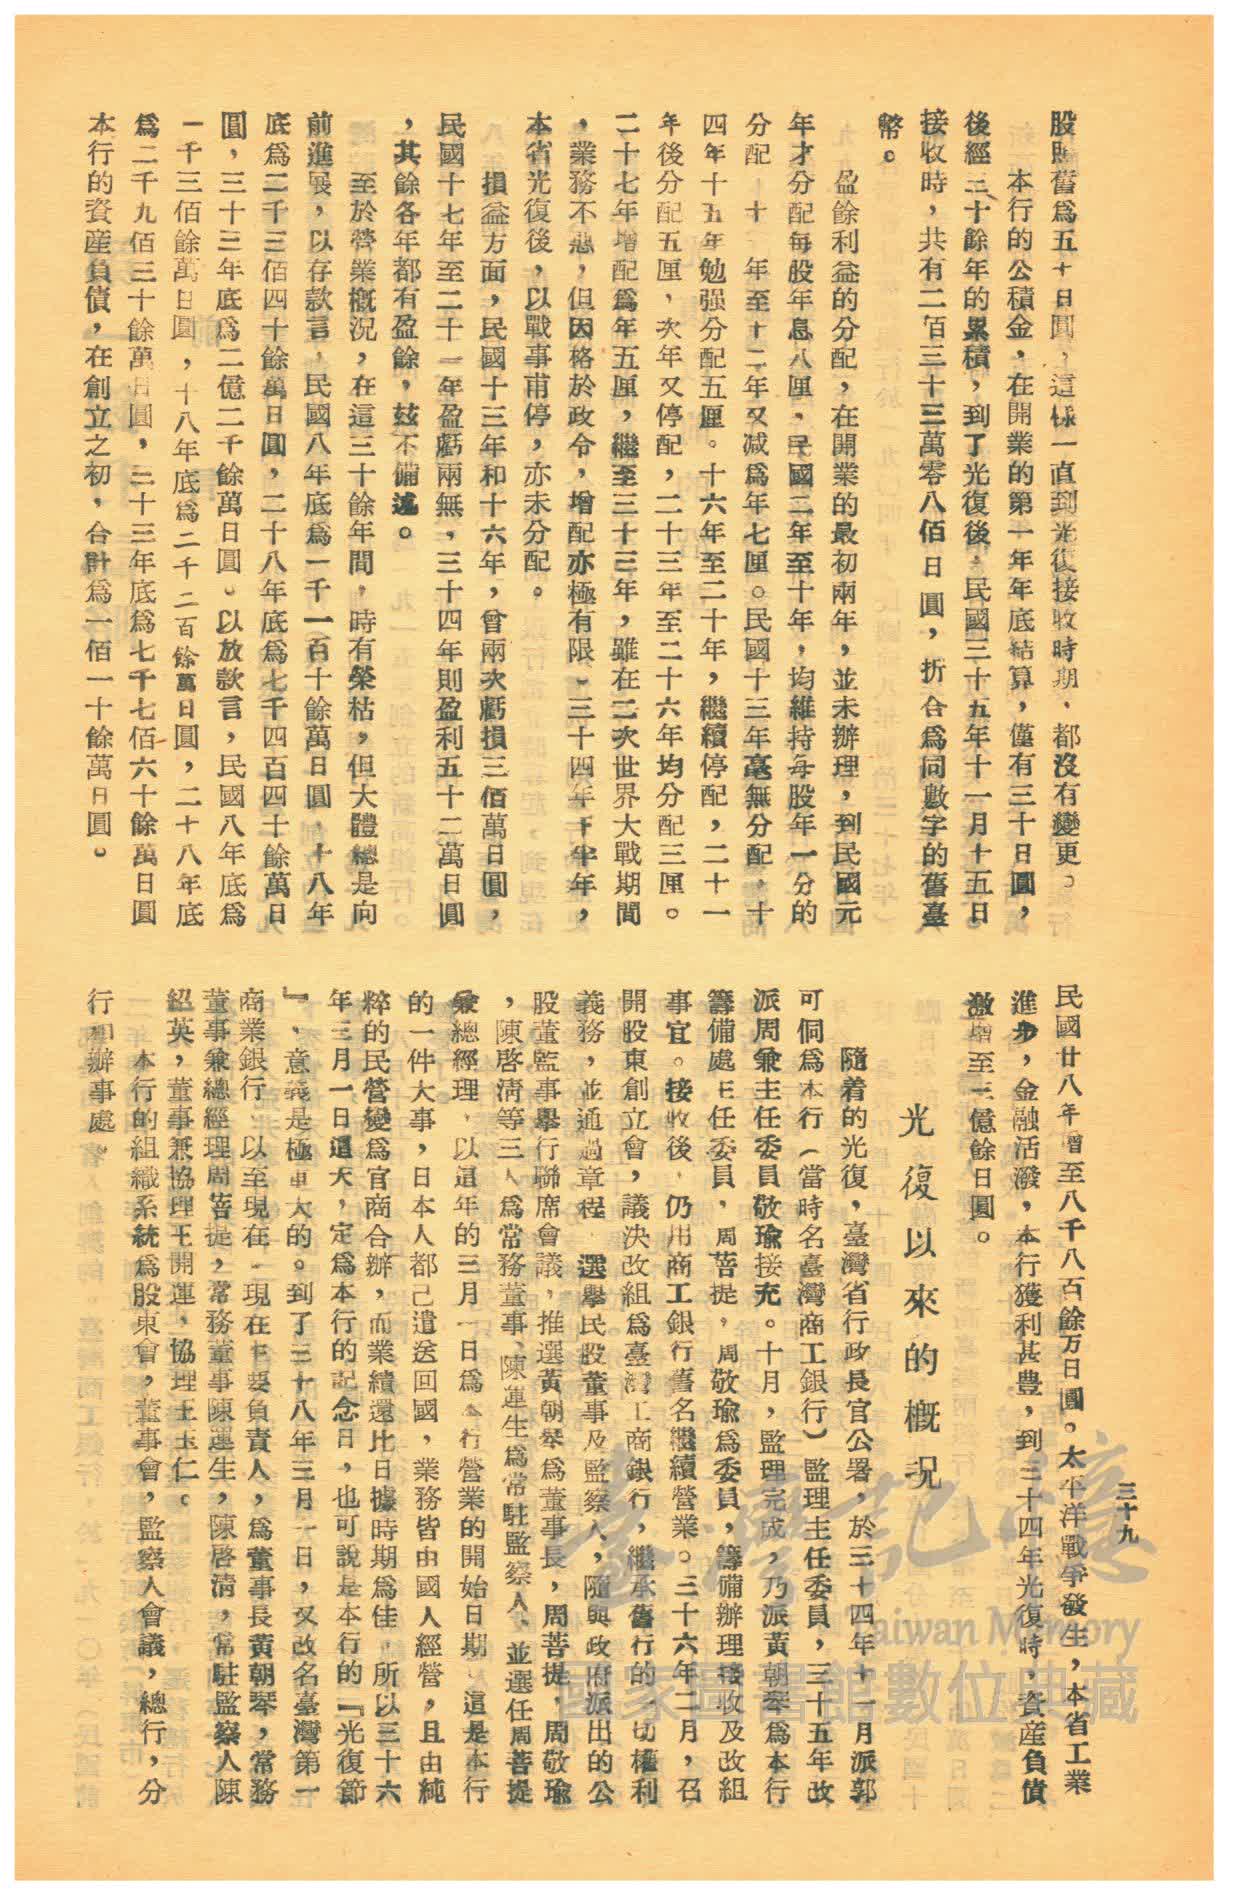 股照舊爲五十日圓，這樣一直到光復接收時期，都沒有變更。
本行的公積金，在開業的第一年年底結算，僅有三十日圓，
後經三十餘年的累積，到了光復後，民國三十五年十一月十五日
接收時，共有二百三十三萬零八佰日圓，折合爲同數字的舊臺
幣。
盈餘利益的分配，在開業的最初兩年，並未辦理，到民國元
年才分配每股年息八厘，民國二年至十年，均維持每股年一分的
分配，十一年至十二年又減爲年七厘。民國十三年毫無分配，十
四年十五年勉强分配五厘。十六年至二十年，繼續停配，二十一
年後分配五厘，次年又停配，二十三年至二十六年均分配三厘。
二十七年增配爲年五厘，繼至三十三年，雖在二次世界大戰期間
，業務不惡，但因格於政令，增配亦極有限，三十四年下半年，
本省光復後，以戰事甫停，亦未分配。
損益方面，民國十三年和十六年，曾兩次虧損三佰萬日圓，
民國十七年至二十一年盈虧兩無，三十四年則盈利五十二萬日圓
，其餘各年都有盈餘，玆不備述。
至於營業槪況，在這三十餘年間，時有榮枯，但大體總是向
前進展，以存款言，民國八年底爲一千一百十餘萬日圓，十八年
底爲二千三佰四十餘萬日圓，二十八年底爲七千四百四十餘萬日
圓，三十三年底爲二億二千餘萬日圓。以放款言，民國八年底爲
一千三佰餘萬日圓，十八年底爲二千二百餘萬日圓，二十八年底
爲二千九佰三十餘萬日圓，三十三年底爲七千七佰六十餘萬日圓
本行的資産負債，在創立之初，合計爲一佰一十餘萬日圓。
民國廿八年增至八千八百餘万日圓。太平洋戰爭發生，本省工業
進步，金融活潑，本行獲利甚豊，到三十四年光復時，資産負債
激增至三億餘日圓。
光復以來的槪況
隨着的光復，臺灣省行政長官公署，於三十四年十一月派郭
可侗爲本行（當時名臺灣商工銀行）監理主任委員，三十五年改
派周兼主任委員敬瑜接充。十月，監理完成，乃派黃朝琴爲本行
籌備處主任委員，周菩提，周敬瑜爲委員，籌備辦理接收及改組
事宜。接收後，仍用商工銀行舊名繼續營業。三十六年二月，召
開股東創立會，議決改組爲臺灣工商銀行，繼承舊行的一切權利
義務，並通過章程，選舉民股董事及監察人，隨與政府派出的公
股董監事舉行聯席會議，推選黃朝琴爲董事長，周菩提，周敬瑜
，陳啓淸等三人爲常務董事，陳運生爲常駐監察人，並選任周菩提
兼總經理，以這年的三月一日爲本行營業的開始日期，這是本行
的一件大事，日本人都己遣送回國，業務皆由國人經營，且由純
粹的民營變爲官商合辦，而業績還比日據時期爲佳，所以三十六
年三月一日這天，定爲本行的記念日，也可說是本行的『光復節
』，意義是極重大的。到了三十八年三月一日，又改名臺灣第一
商業銀行，以至現在。現在主要負責人，爲董事長黃朝琴，常務
董事兼總經理周菩提，常務董事陳運生，陳啓淸，常駐監察人陳
紹英，董事兼協理王開運，協理王玉仁。
本行的組織系統爲股東會，董事會，監察人會議，總行，分
行和辦事處。
三十九
臺灣記憶
Taiwan Memory
國家圖書館數位典藏